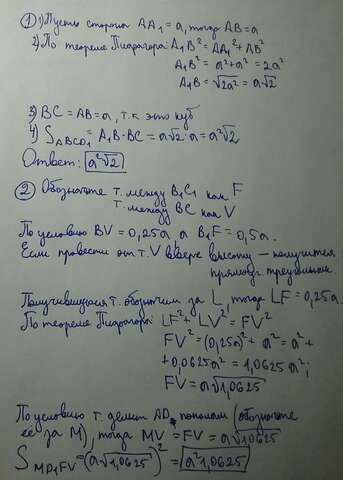 ① 1) Пусть сторона AA₁ = a, тогда AB = a
2) По теореме Пифагора: A₁B² = AA₁² + AB²
A₁B² = a² + a² = 2a²
A₁B = √2a² = a√2
3) BC = AB = a, т.к это куб
4) S_ABCD₁ = A₁B · BC = a√2 · a = a²√2
Ответ: a²√2
② Обозначте т. между B₁C₁ как F
т. между BC как V
По условию BV = 0,25a, а B₁F = 0,5a.
Если провести от т. V вверх высоту — получится
прямоуг. треугольник.
Получившуюся т. обозначим за L, тогда LF = 0,25a.
По теореме Пифагора: LF² + LV² = FV²
FV² = (0,25a)² + a² = a² +
+ 0,0625a² = 1,0625a²;
FV = a√1,0625
По условию т. делит AD пополам (обозначте
ее за M), тогда MV = FV = a√1,0625
S_MD₁FV = (a√1,0625)² = a²1,0625